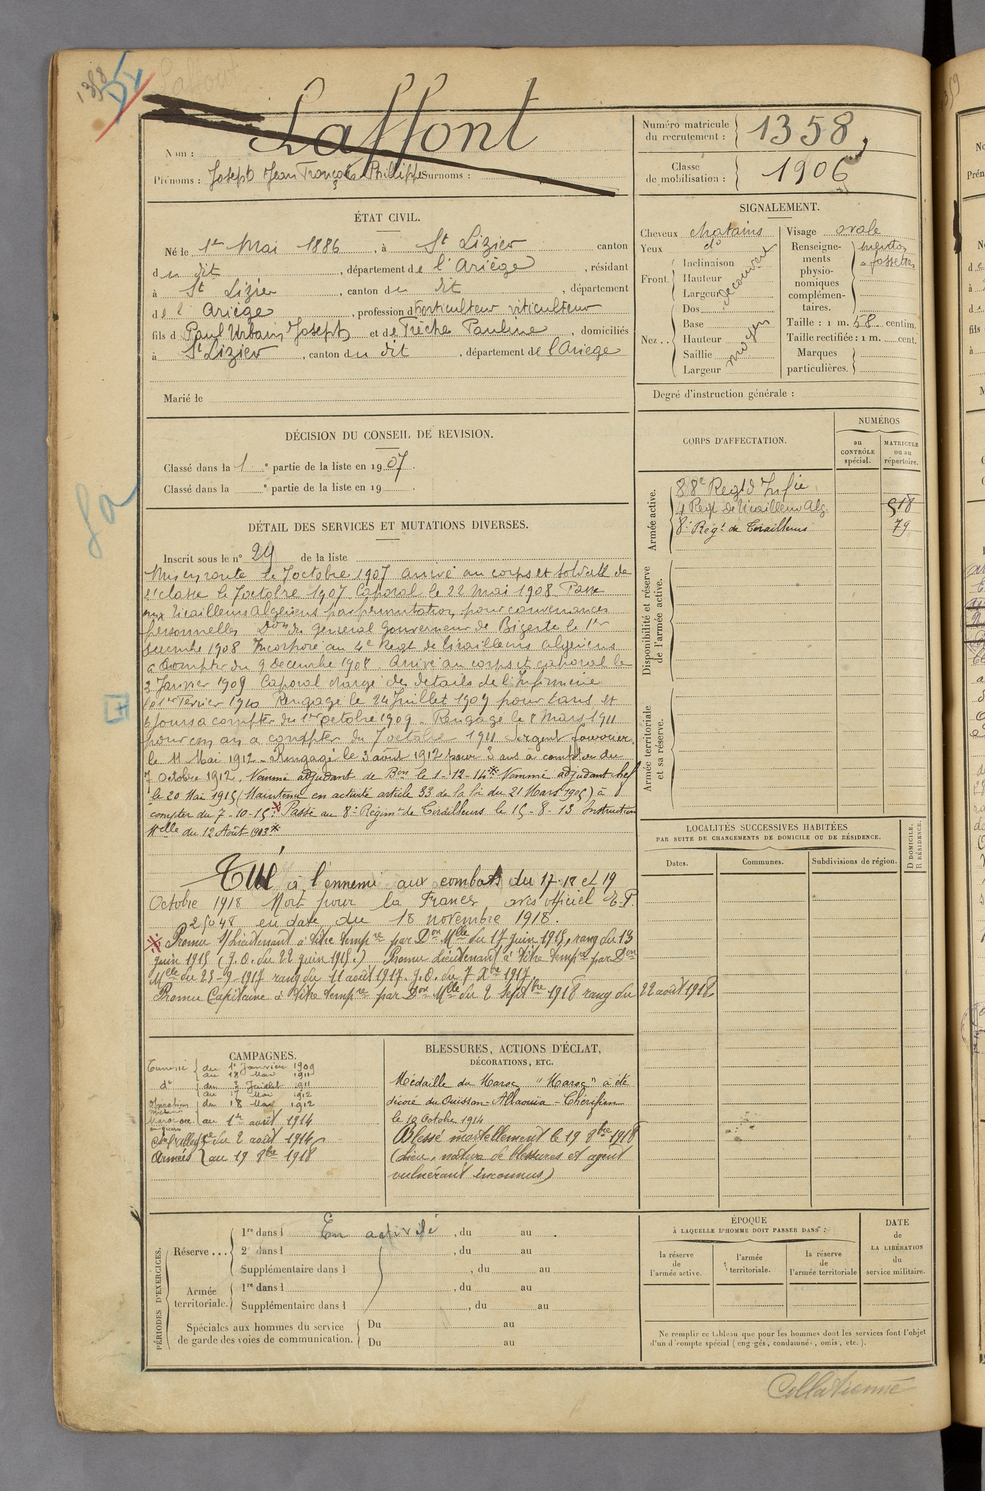 1358
Laffont
Nom : Laffont
Prénoms : Joseph Jean François Philippe Surnoms :
Numéro matricule du recrutement : 1358
Classe de mobilisation : 1906
ÉTAT CIVIL.
Né le 1er Mai 1886, à St Lizier canton
du dit, département de l'Ariège, résidant
à St Lizier, canton du dit, département
de l'Ariège, profession d'horticulteur viticulteur
fils d Paul Urbain Joseph et de Trèche Pauline, domiciliés
à St Lizier, canton du dit, département de l'Ariège
Marié le
SIGNALEMENT.
Cheveux chatains
Yeux do
Front. Inclinaison
Hauteur
Largeur
découvert
Nez.. Dos
Base
Hauteur
Saillie
Largeur
moyen
Visage ovale
Renseignements physionomiques complémentaires. menton à fossettes
Taille : 1 m. 58 centim.
Taille rectifiée : 1 m. cent.
Marques particulières.
Degré d'instruction générale :
DÉCISION DU CONSEIL DE REVISION.
Classé dans la 1e partie de la liste en 1907.
Classé dans la e partie de la liste en 19
CORPS D'AFFECTATION.
NUMÉROS
au CONTRÔLE spécial.
MATRICULE ou au répertoire.
Armée active.
88e Regt d'Infie
4 Regt de Tirailleurs Alg. 518
8e Regt de Tirailleurs 79
Disponibilité et réserve de l'armée active.
Armée territoriale et sa réserve.
DÉTAIL DES SERVICES ET MUTATIONS DIVERSES.
Inscrit sous le n° 29 de la liste
Mis en route le 7 octobre 1907 arrivé au corps et soldat de
2e classe le 7 octobre 1907 Caporal le 22 Mai 1908. Passé
aux Tirailleurs Algériens par permutation pour convenances
personnelles Don du Général Gouverneur de Bizerte le 1er
décembre 1908 Incorporé au 4e Regt de Tirailleurs algériens
à compter du 9 décembre 1908. Arrivé au corps et caporal le
2 Janvier 1909 Caporal chargé des détails de l'Infirmerie
le 1er Février 1910 Rengagé le 24 Juillet 1909 pour 1 ans et
6 jours à compter du 1er octobre 1909. Rengagé le 8 Mars 1911
pour un an à compter du 7 octobre 1911 Sergent fourrier
le 11 Mai 1912. Rengagé le 3 août 1912 pour 3 ans à compter du
7 octobre 1912. Nommé adjudant de Bon le 1-12-14 Nommé adjudant chef
le 20 Mai 1915 (Maintenu en activité article 33 de la loi du 21 Mars 1905) à
compter du 7-10-15. Passé au 8e Régiment de Tirailleurs le 15-8-13 Instruction
Melle du 12 Août 1913
Tué à l'ennemi aux combats du 17-18 et 19
Octobre 1918 Mort pour la France, avis officiel E.P.
25048 en date du 18 novembre 1918.
Promu S/Lieutenant à titre tempre par Don Melle du 17 juin 1915, rang du 13
juin 1915 (J.O. du 22 juin 1915.) Promu Lieutenant à titre tempre par Don
Melle du 25-9-1917 rang du 11 août 1917. J.O. du 7 Xbre 1917
Promu Capitaine à titre tempre par Don Melle du 2 Septbre 1918 rang du 22 août 1918
LOCALITÉS SUCCESSIVES HABITÉES
PAR SUITE DE CHANGEMENTS DE DOMICILE OU DE RÉSIDENCE.
Dates.
Communes.
Subdivisions de région.
D DOMICILE, R RÉSIDENCE.
CAMPAGNES.
Tunisie du 1er Janvier 1909
au 18 Mai 1911
do du 3 Juillet 1911
au 17 Mai 1912
du 18 Mai 1912
Maroc au 1er août 1914
du 2 août 1914
Armées au 19 8bre 1918
BLESSURES, ACTIONS D'ÉCLAT,
DÉCORATIONS, ETC.
Médaille du Maroc "Maroc" a été
décoré du Ouissam-Allaouia-Chérifien
le 12 Octobre 1914
Blessé mortellement le 19 8bre 1918
(lieu, nature de blessures et agent
vulnérant inconnus)
PÉRIODES D'EXERCICES.
Réserve... 1re dans l En activité, du au
2e dans l , du au
Supplémentaire dans l , du au
Armée territoriale. 1re dans l , du au
Supplémentaire dans l , du au
Spéciales aux hommes du service de garde des voies de communication. Du au
Du au
ÉPOQUE
À LAQUELLE L'HOMME DOIT PASSER DANS :
la réserve de l'armée active.
l'armée territoriale.
la réserve de l'armée territoriale
DATE de LA LIBÉRATION du service militaire.
Ne remplir ce tableau que pour les hommes dont les services font l'objet
d'un décompte spécial (engagés, condamnés, omis, etc.).
Collationné